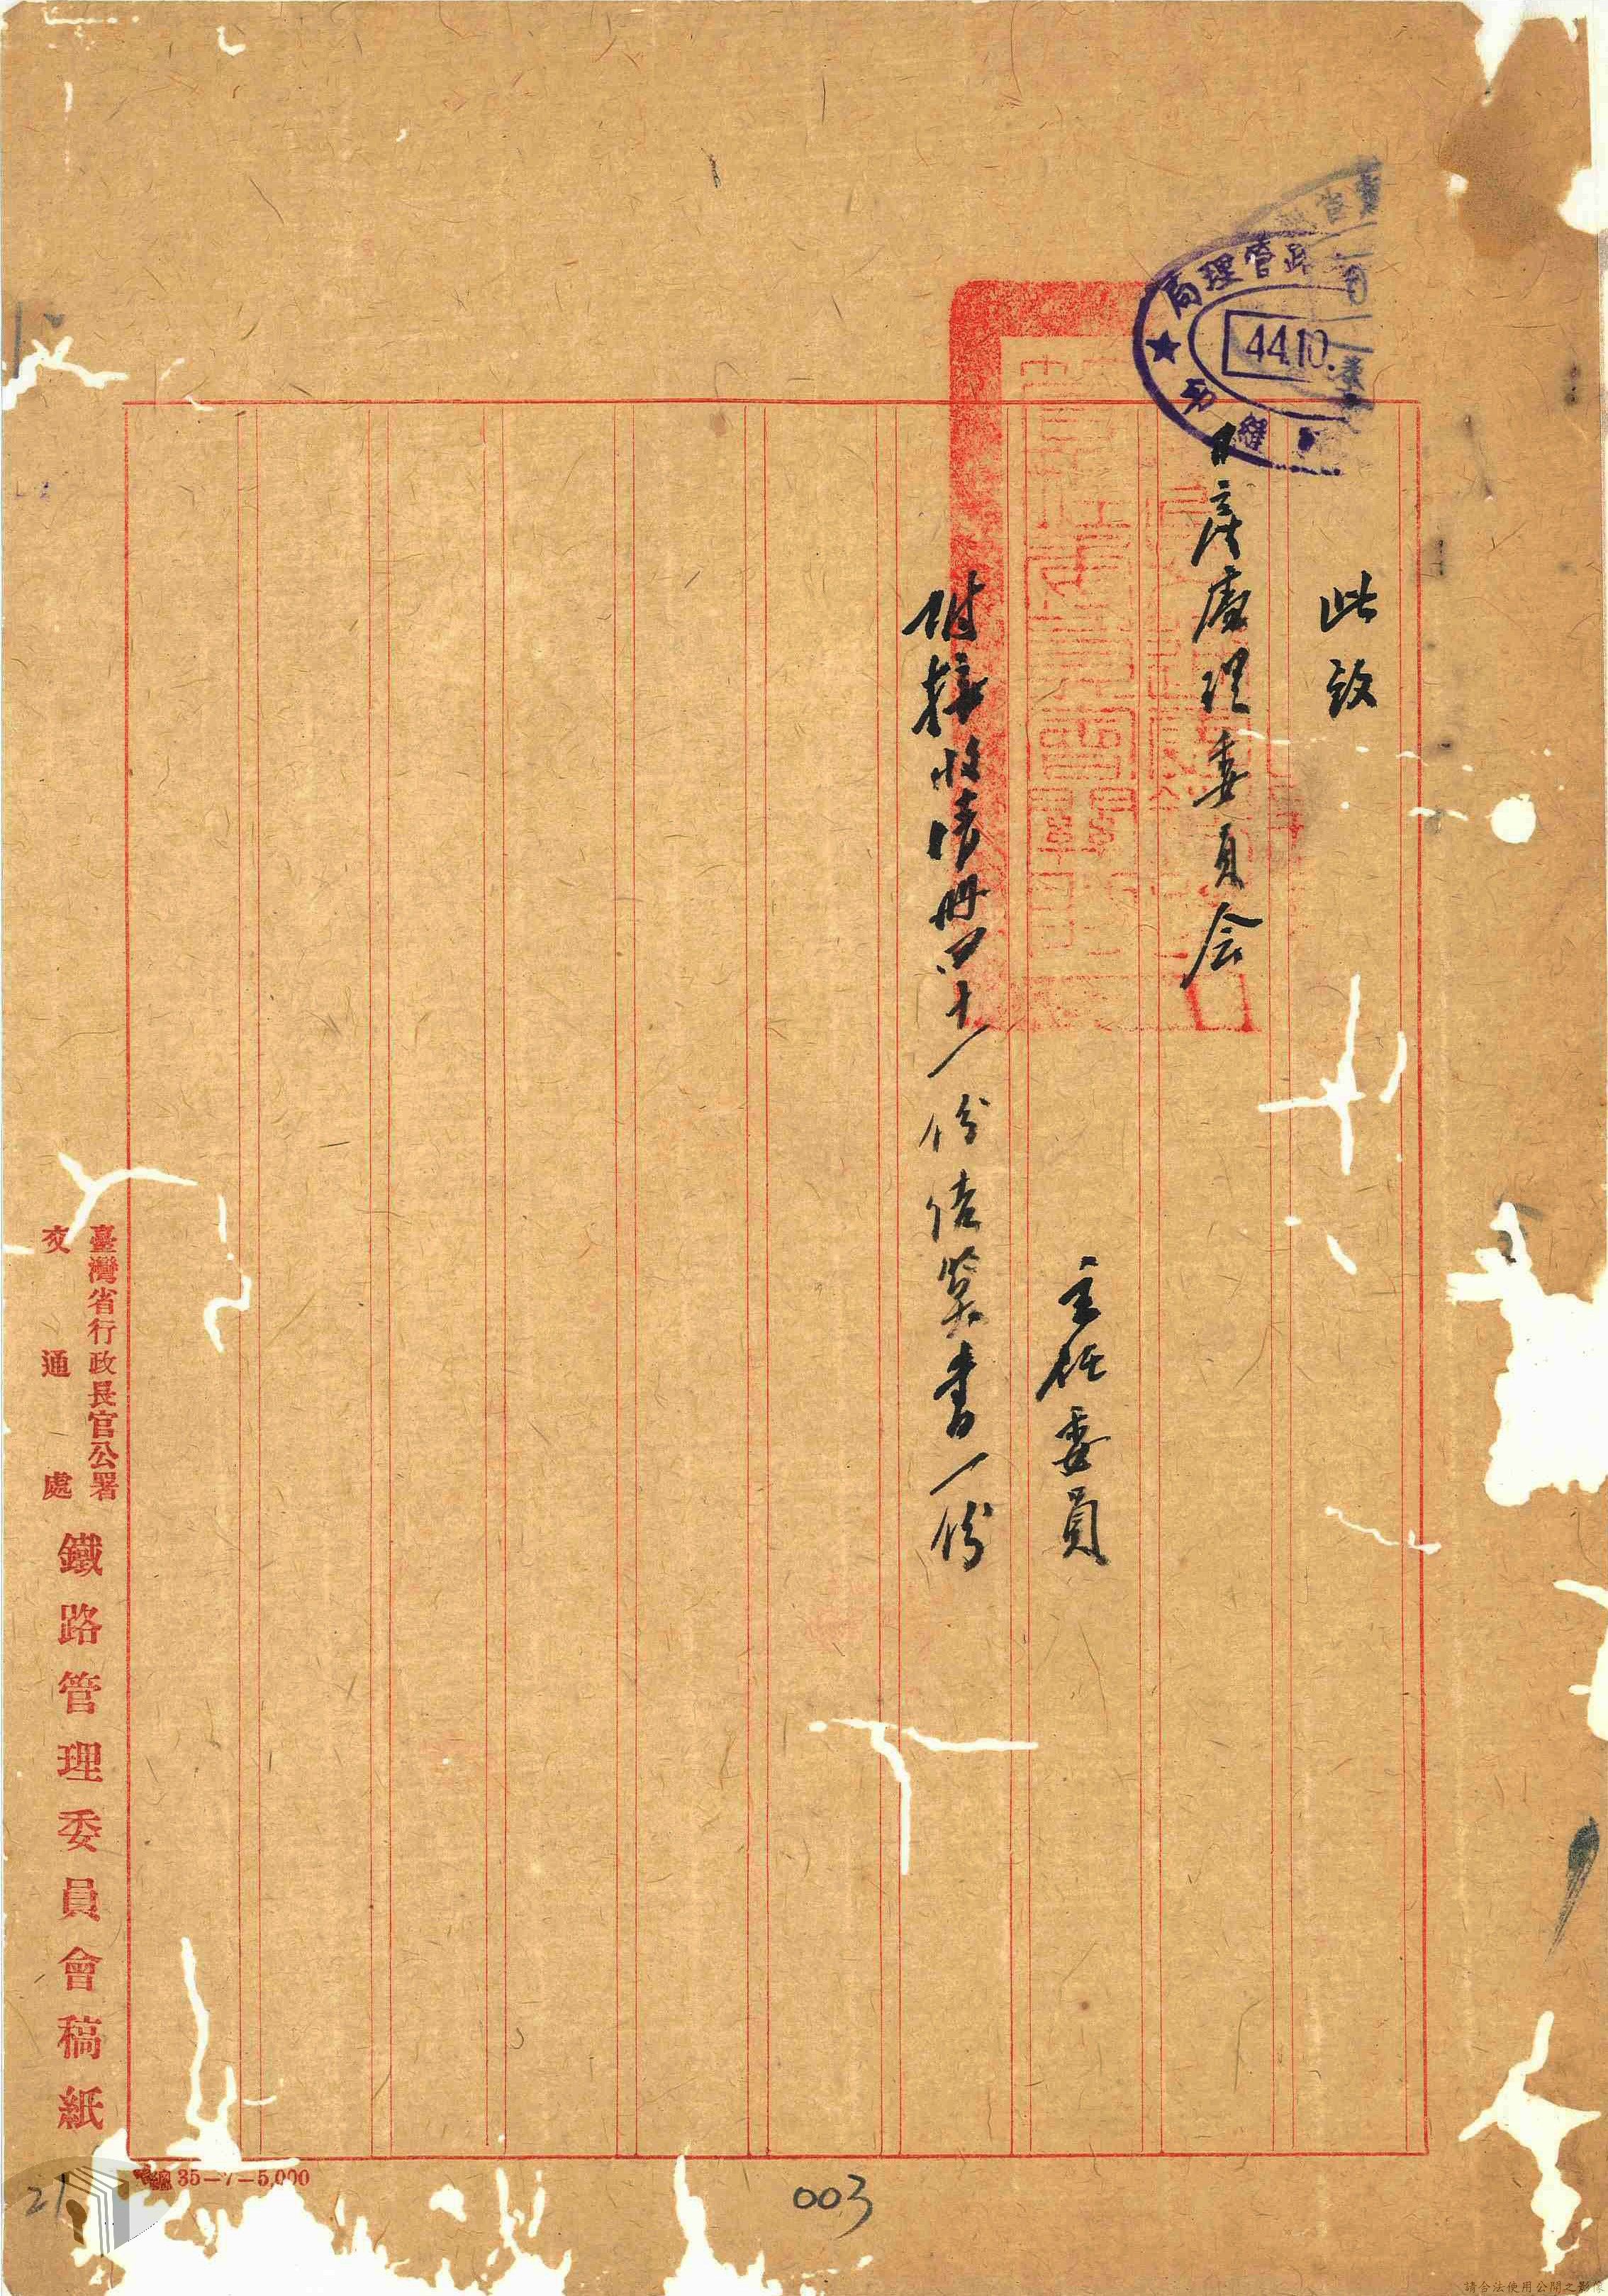 此致
日產處理委員会
主任委員
附接收清册四十一份估算書一份
局理管路
44.10.
臺灣省行政長官公署
交通處
鐵路管理委員會稿紙
35-7-5,000
21
003
請合法使用公開之影像